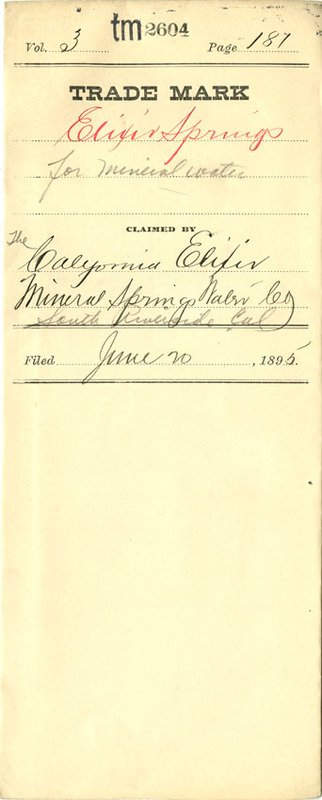 Vol. 3 tm 2604 Page 187
TRADE MARK
Elixir Springs
for mineral water
CLAIMED BY
The
California Elixir
Mineral Springs Water Co
South Riverside Cal
Filed June 20, 1895.